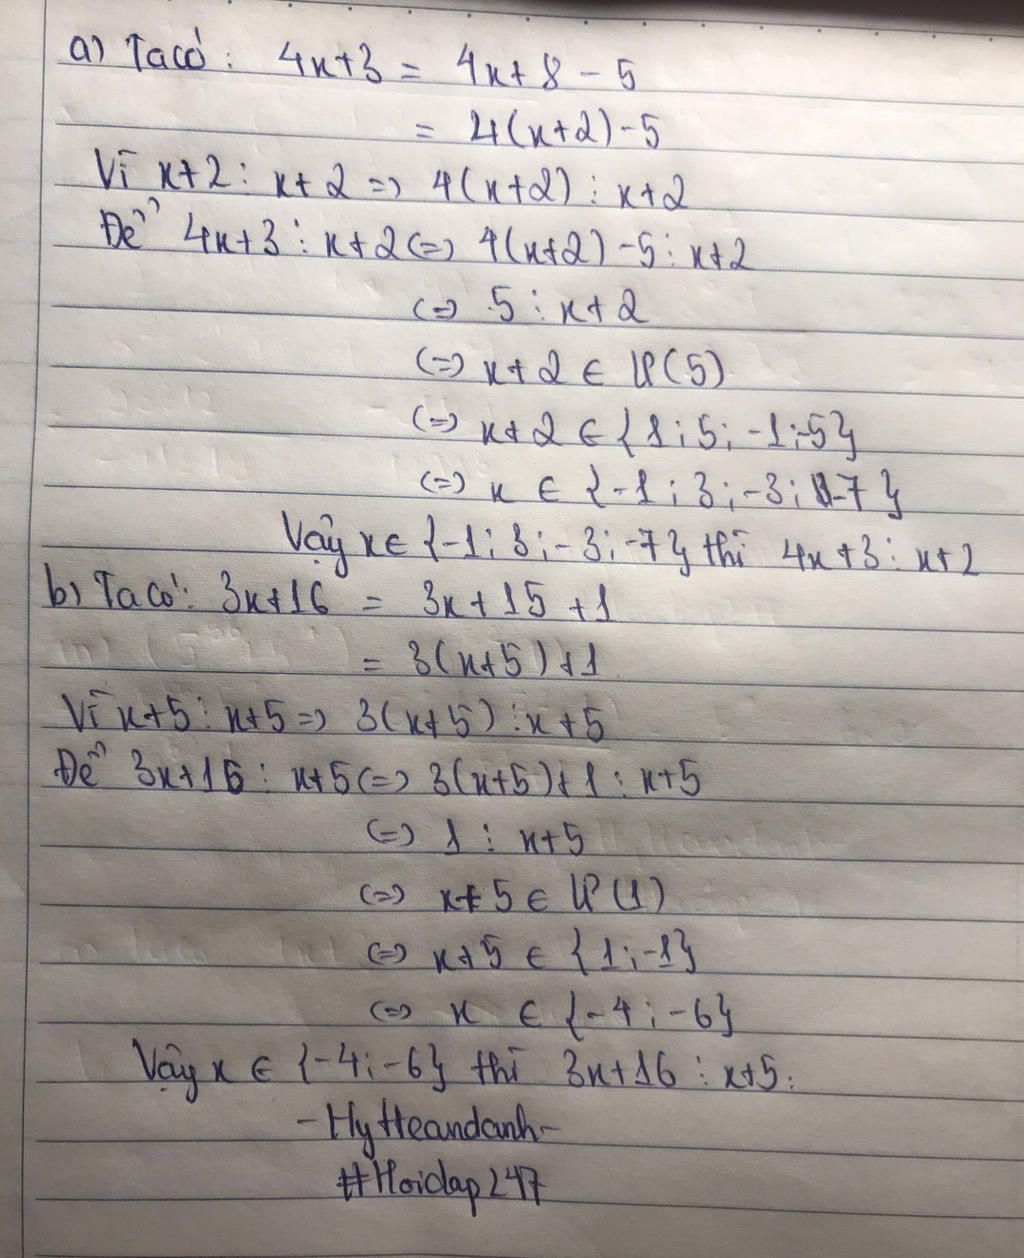 a) Ta có: 4x+3 = 4x+8-5
= 4(x+2)-5
Vì x+2 ⋮ x+2 => 4(x+2) ⋮ x+2
Để 4x+3 ⋮ x+2 <=> 4(x+2)-5 ⋮ x+2
<=> 5 ⋮ x+2
<=> x+2 ∈ Ư(5)
<=> x+2 ∈ {1;5;-1;-5}
<=> x ∈ {-1;3;-3;-7}
Vậy x∈ {-1;3;-3;-7} thì 4x+3 ⋮ x+2
b) Ta có: 3x+16 = 3x+15+1
= 3(x+5)+1
Vì x+5 ⋮ x+5 => 3(x+5) ⋮ x+5
Để 3x+16 ⋮ x+5 <=> 3(x+5)+1 ⋮ x+5
<=> 1 ⋮ x+5
<=> x+5 ∈ Ư(1)
<=> x+5 ∈ {1;-1}
<=> x ∈ {-4;-6}
Vậy x ∈ {-4;-6} thì 3x+16 ⋮ x+5.
-HyHeandanh-
#Hoidap247